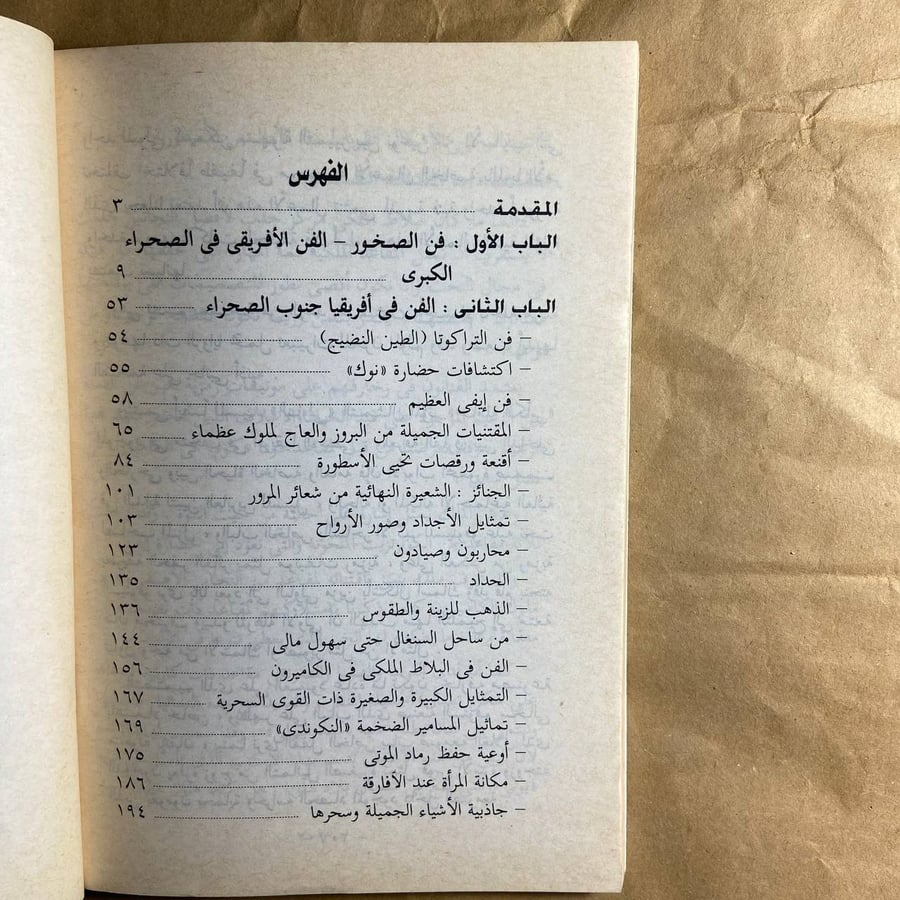 الفهرس
المقدمة ٣
الباب الأول : فن الصخور – الفن الأفريقى فى الصحراء
الكبرى ٩
الباب الثانى : الفن فى أفريقيا جنوب الصحراء ٥٣
– فن التراكوتا (الطين النضيج) ٥٤
– اكتشافات حضارة «نوك» ٥٥
– فن إيفى العظيم ٥٨
– المقتنيات الجميلة من البروز والعاج لملوك عظماء ٦٥
– أقنعة ورقصات تحيى الأسطورة ٨٤
– الجنائز : الشعيرة النهائية من شعائر المرور ١٠١
– تمثايل الأجداد وصور الأرواح ١٠٣
– محاربون وصيادون ١٢٣
– الحداد ١٣٥
– الذهب للزينة والطقوس ١٣٦
– من ساحل السنغال حتى سهول مالى ١٤٤
– الفن فى البلاط الملكى فى الكاميرون ١٥٦
– التمثايل الكبيرة والصغيرة ذات القوى السحرية ١٦٧
– تماثيل المسامير الضخمة «النكوندى» ١٦٩
– أوعية حفظ رماد الموتى ١٧٥
– مكانة المرأة عند الأفارقة ١٨٦
– جاذبية الأشياء الجميلة وسحرها ١٩٤